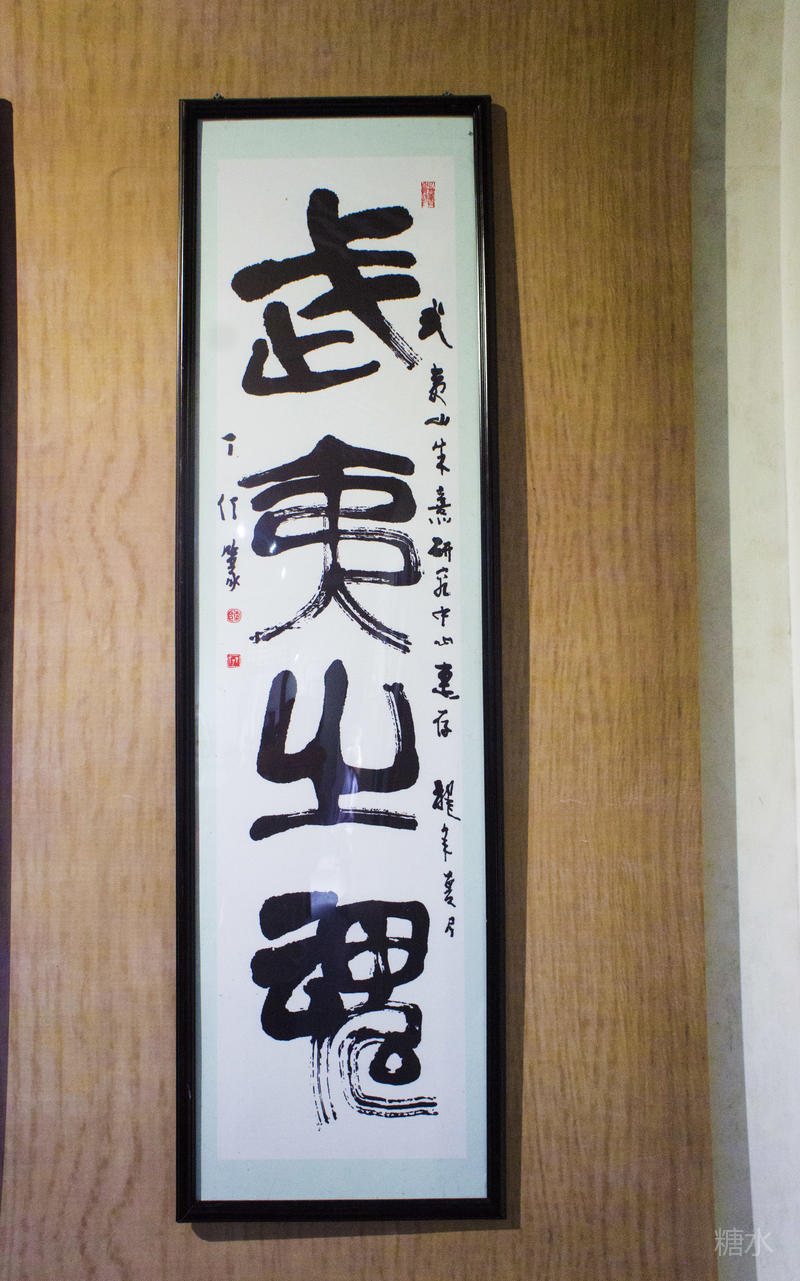 武夷之魂
武夷山朱熹研究中心惠存
夏月
丁 篆
糖水